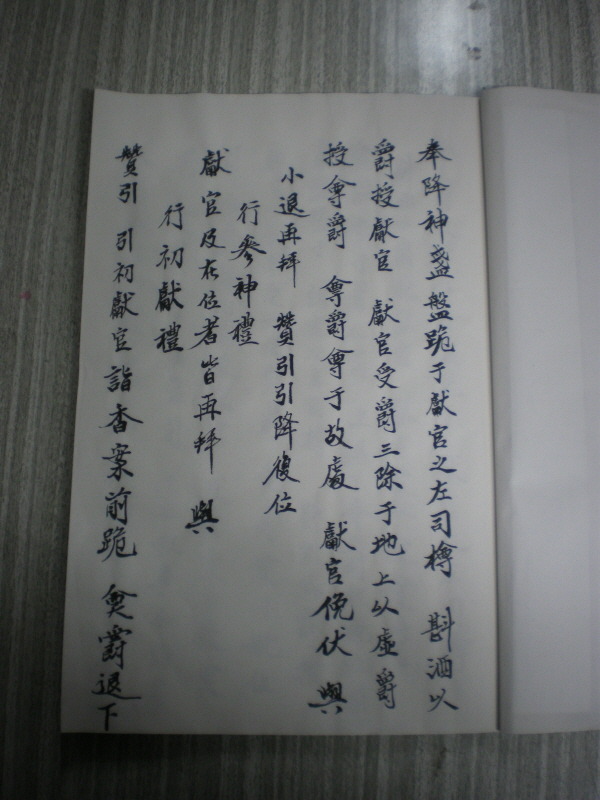 奉降神盞盤跪于獻官之左司樽 斟酒以
爵授獻官 獻官受爵三除于地上以虛爵
授奠爵 奠爵奠于故處 獻官俛伏 興
小退再拜 贊引引降復位
行參神禮
獻官及在位者皆再拜 興
行初獻禮
贊引 引初獻官詣香案前跪 奠爵退下